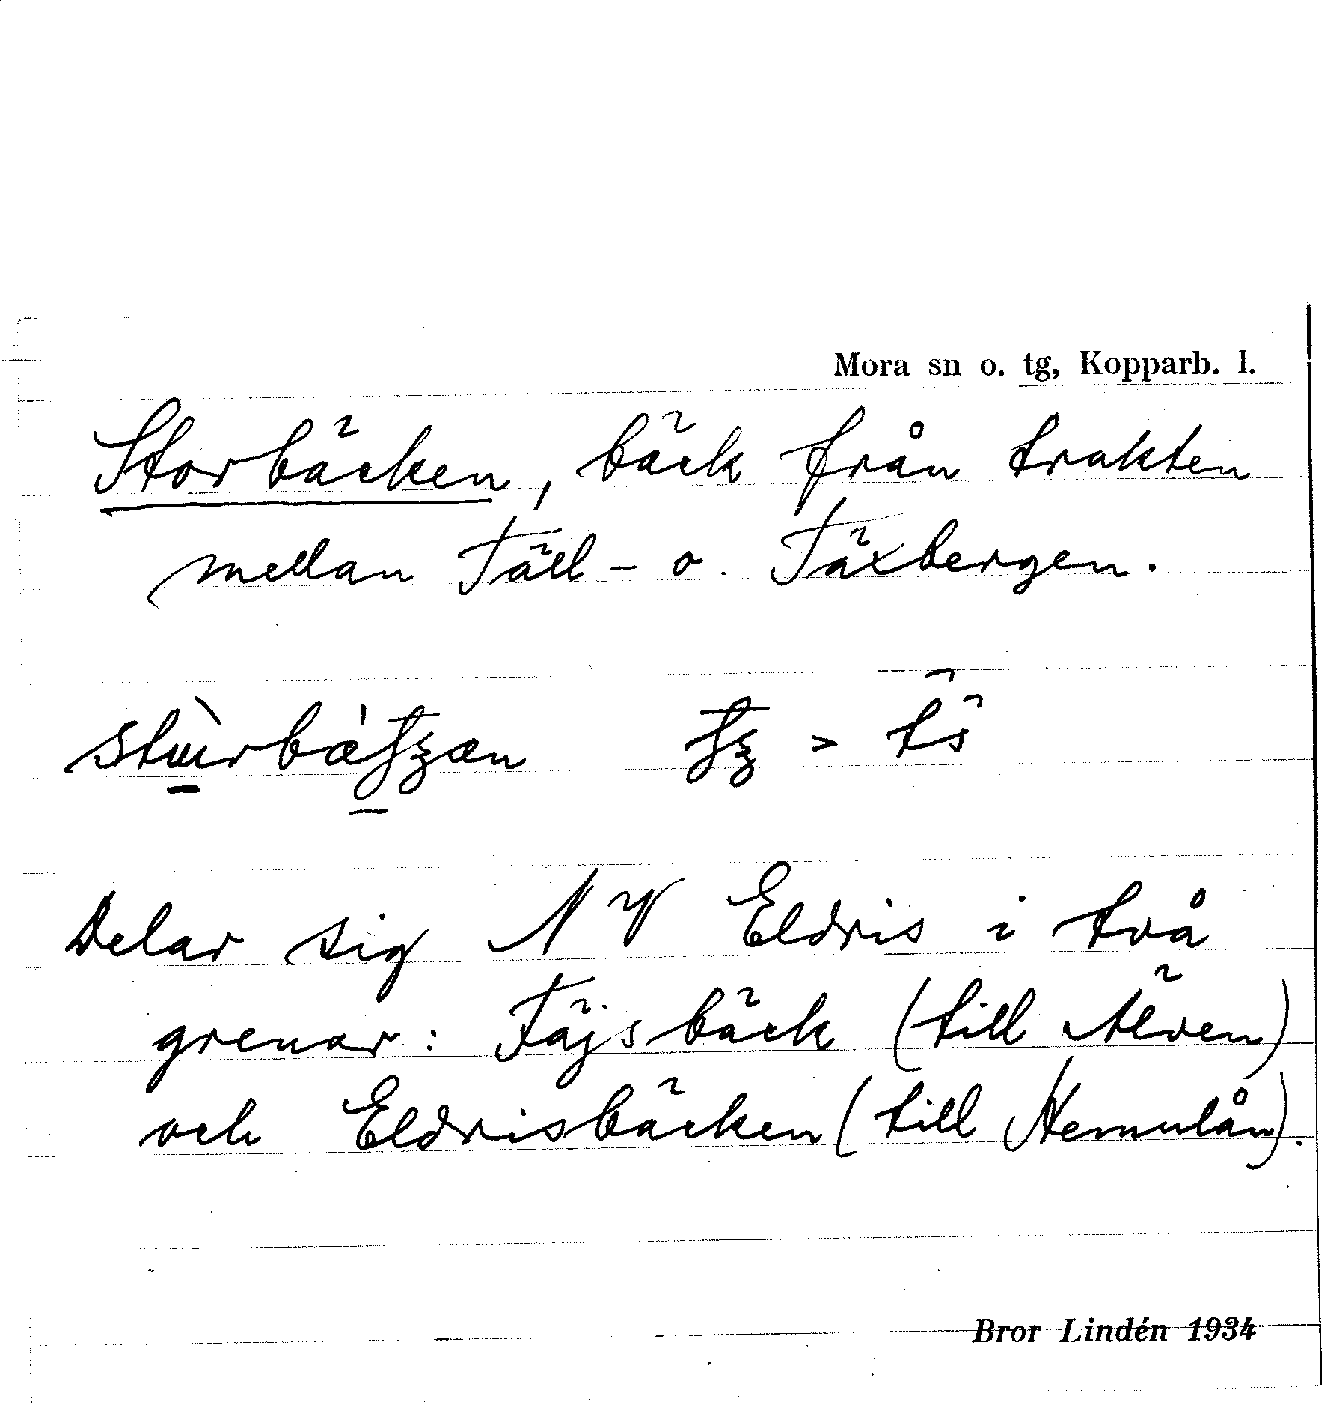 Mora sn o. tg, Kopparb. l.
Storbäcken, bäck från trakten
mellan Täll- o. Täxbergen.
Delar sig NV Eldris i två
grenar: Täjsbäck (till Älven)
och Eldrisbäcken (till Hemulån).
Bror Lindén 1934